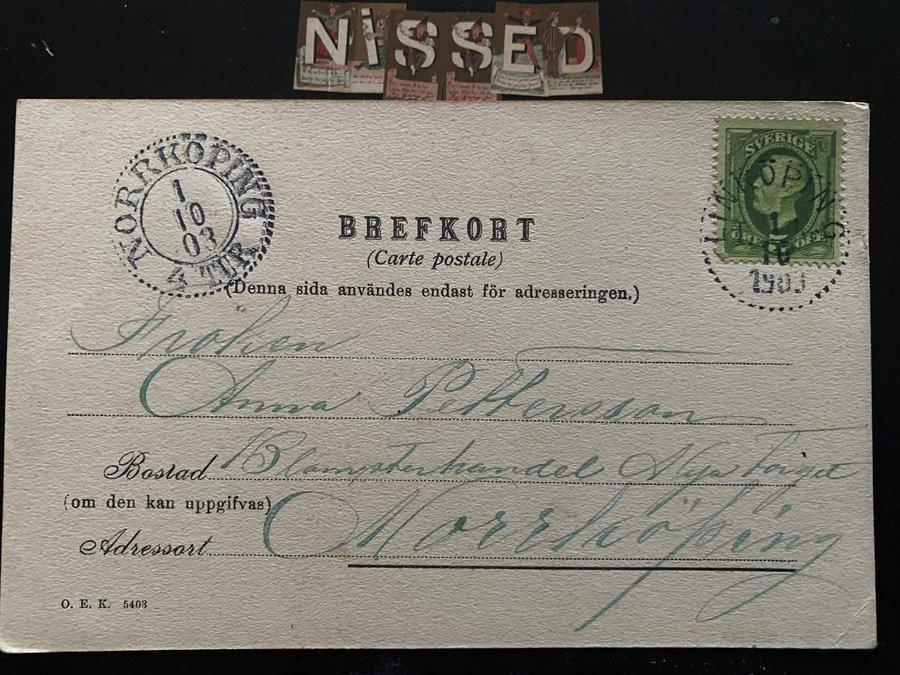 NiSSED
NORRKÖPING
1
10
03
4 TUR
SVERIGE
LINKÖPING
1
10
1903
BREFKORT
(Carte postale)
(Denna sida användes endast för adresseringen.)
Fröken
Anna Pettersson
Bostad Blomsterhandel Nya Torget
(om den kan uppgifvas)
Adressort Norrköping
O. E. K. 5403